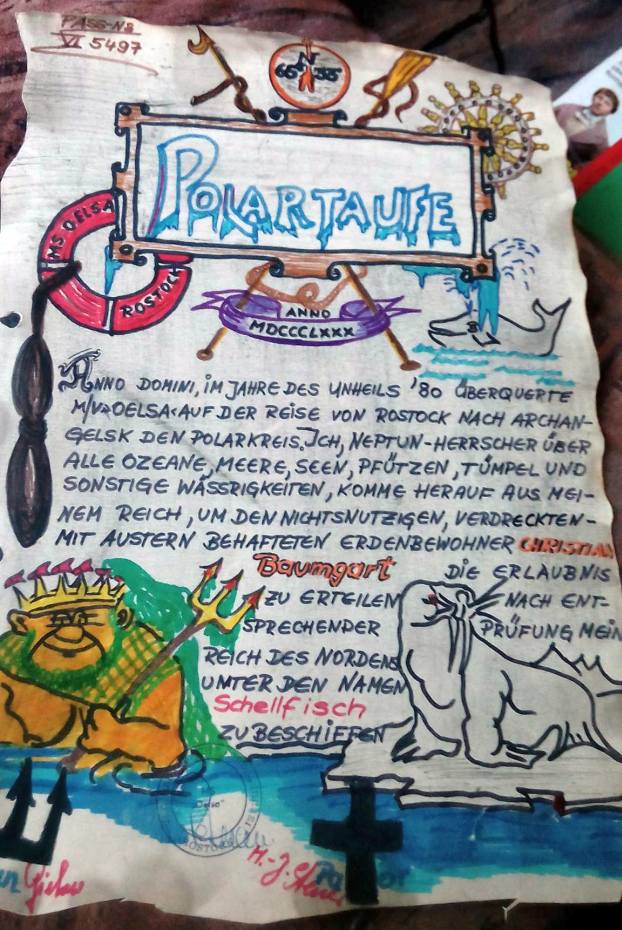 PASS-No
VI 5497
N
66° 33'
POLARTAUFE
MS OELSA
ROSTOCK
ANNO
MDCCCLXXX
ANNO DOMINI, IM JAHRE DES UNHEILS '80 ÜBERQUERTE
M/V>OELSA<AUF DER REISE VON ROSTOCK NACH ARCHAN-
GELSK DEN POLARKREIS. ICH, NEPTUN-HERRSCHER ÜBER
ALLE OZEANE, MEERE, SEEN, PFÜTZEN, TÜMPEL UND
SONSTIGE WÄSSRIGKEITEN, KOMME HERAUF AUS MEI-
NEM REICH, UM DEN NICHTSNUTZIGEN, VERDRECKTEN-
MIT AUSTERN BEHAFTETEN ERDENBEWOHNER CHRISTIAN
Baumgart DIE ERLAUBNIS
ZU ERTEILEN NACH ENT-
SPRECHENDER PRÜFUNG MEIN
REICH DES NORDENS
UNTER DEN NAMEN
Schellfisch
ZU BESCHIFFEN
"Oelsa"
ROSTOCK
H.-J.